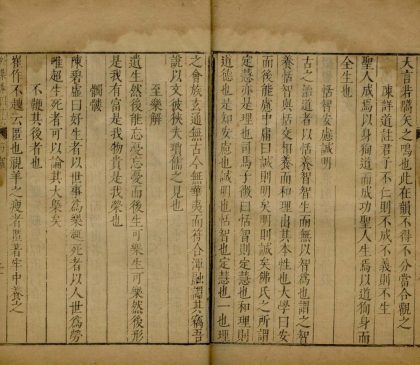 大言若嚆矢之鳴也此在韻不得不分當合觀之
陳詳道註君子不仁則不成不義則不生
聖人成焉以身徇道而成功聖人生焉以道徇身而
全生也
恬智安慮誠明
古之語道者以恬養智智生而無以智為也謂之智
養恬智與恬交相養而和理出其本性也大學曰安
而後能慮中庸曰誠則明矣明則誠矣佛氏之所謂
定慧亦是理也司馬子微曰恬智則定慧也和理則
道德也是知安慮也誠明也恬智也定慧也一也理
之會族玄通無古今無華夷而符合渾融謂其稿吾
說以文彼狹夫瑣儒之見也
至樂解
遺生然後能忘憂忘憂而後生可樂生可樂然後形
是我有富是我物貴是我榮也
髑髏
陳碧虛曰好生者以世事為樂死者以人世為勞
唯超生死者可以論其大槩矣
不鞭其後者也
崔作不趍云匿也視羊之瘦者匿著牢中養之